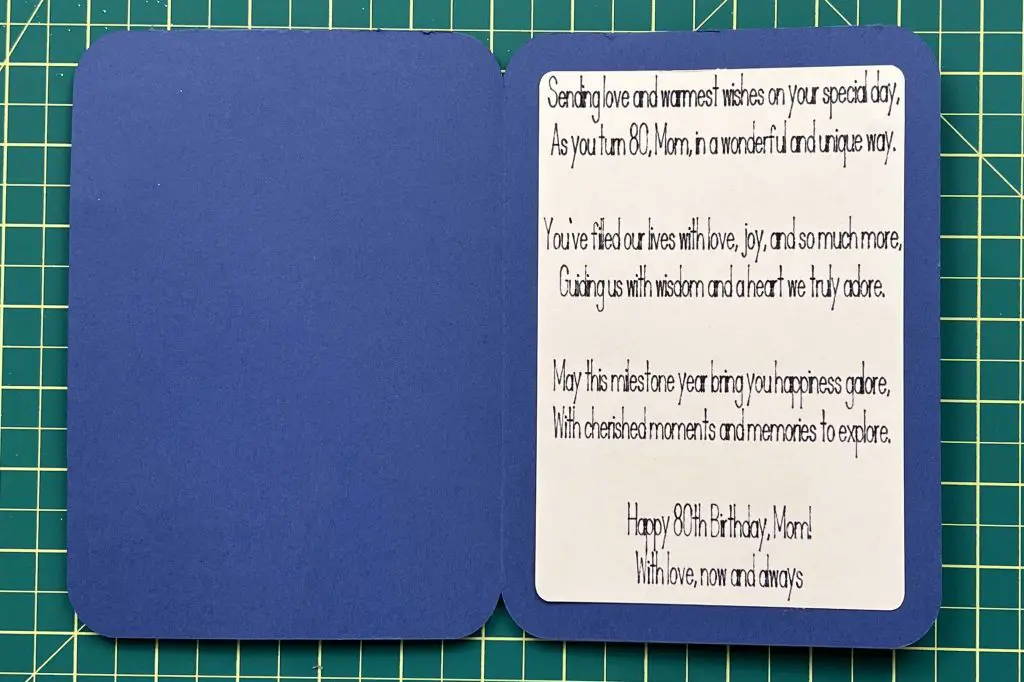 Sending love and warmest wishes on your special day,
As you turn 80, Mom, in a wonderful and unique way.
You've filled our lives with love, joy, and so much more,
Guiding us with wisdom and a heart we truly adore.
May this milestone year bring you happiness galore,
With cherished moments and memories to explore.
Happy 80th Birthday, Mom!
With love, now and always